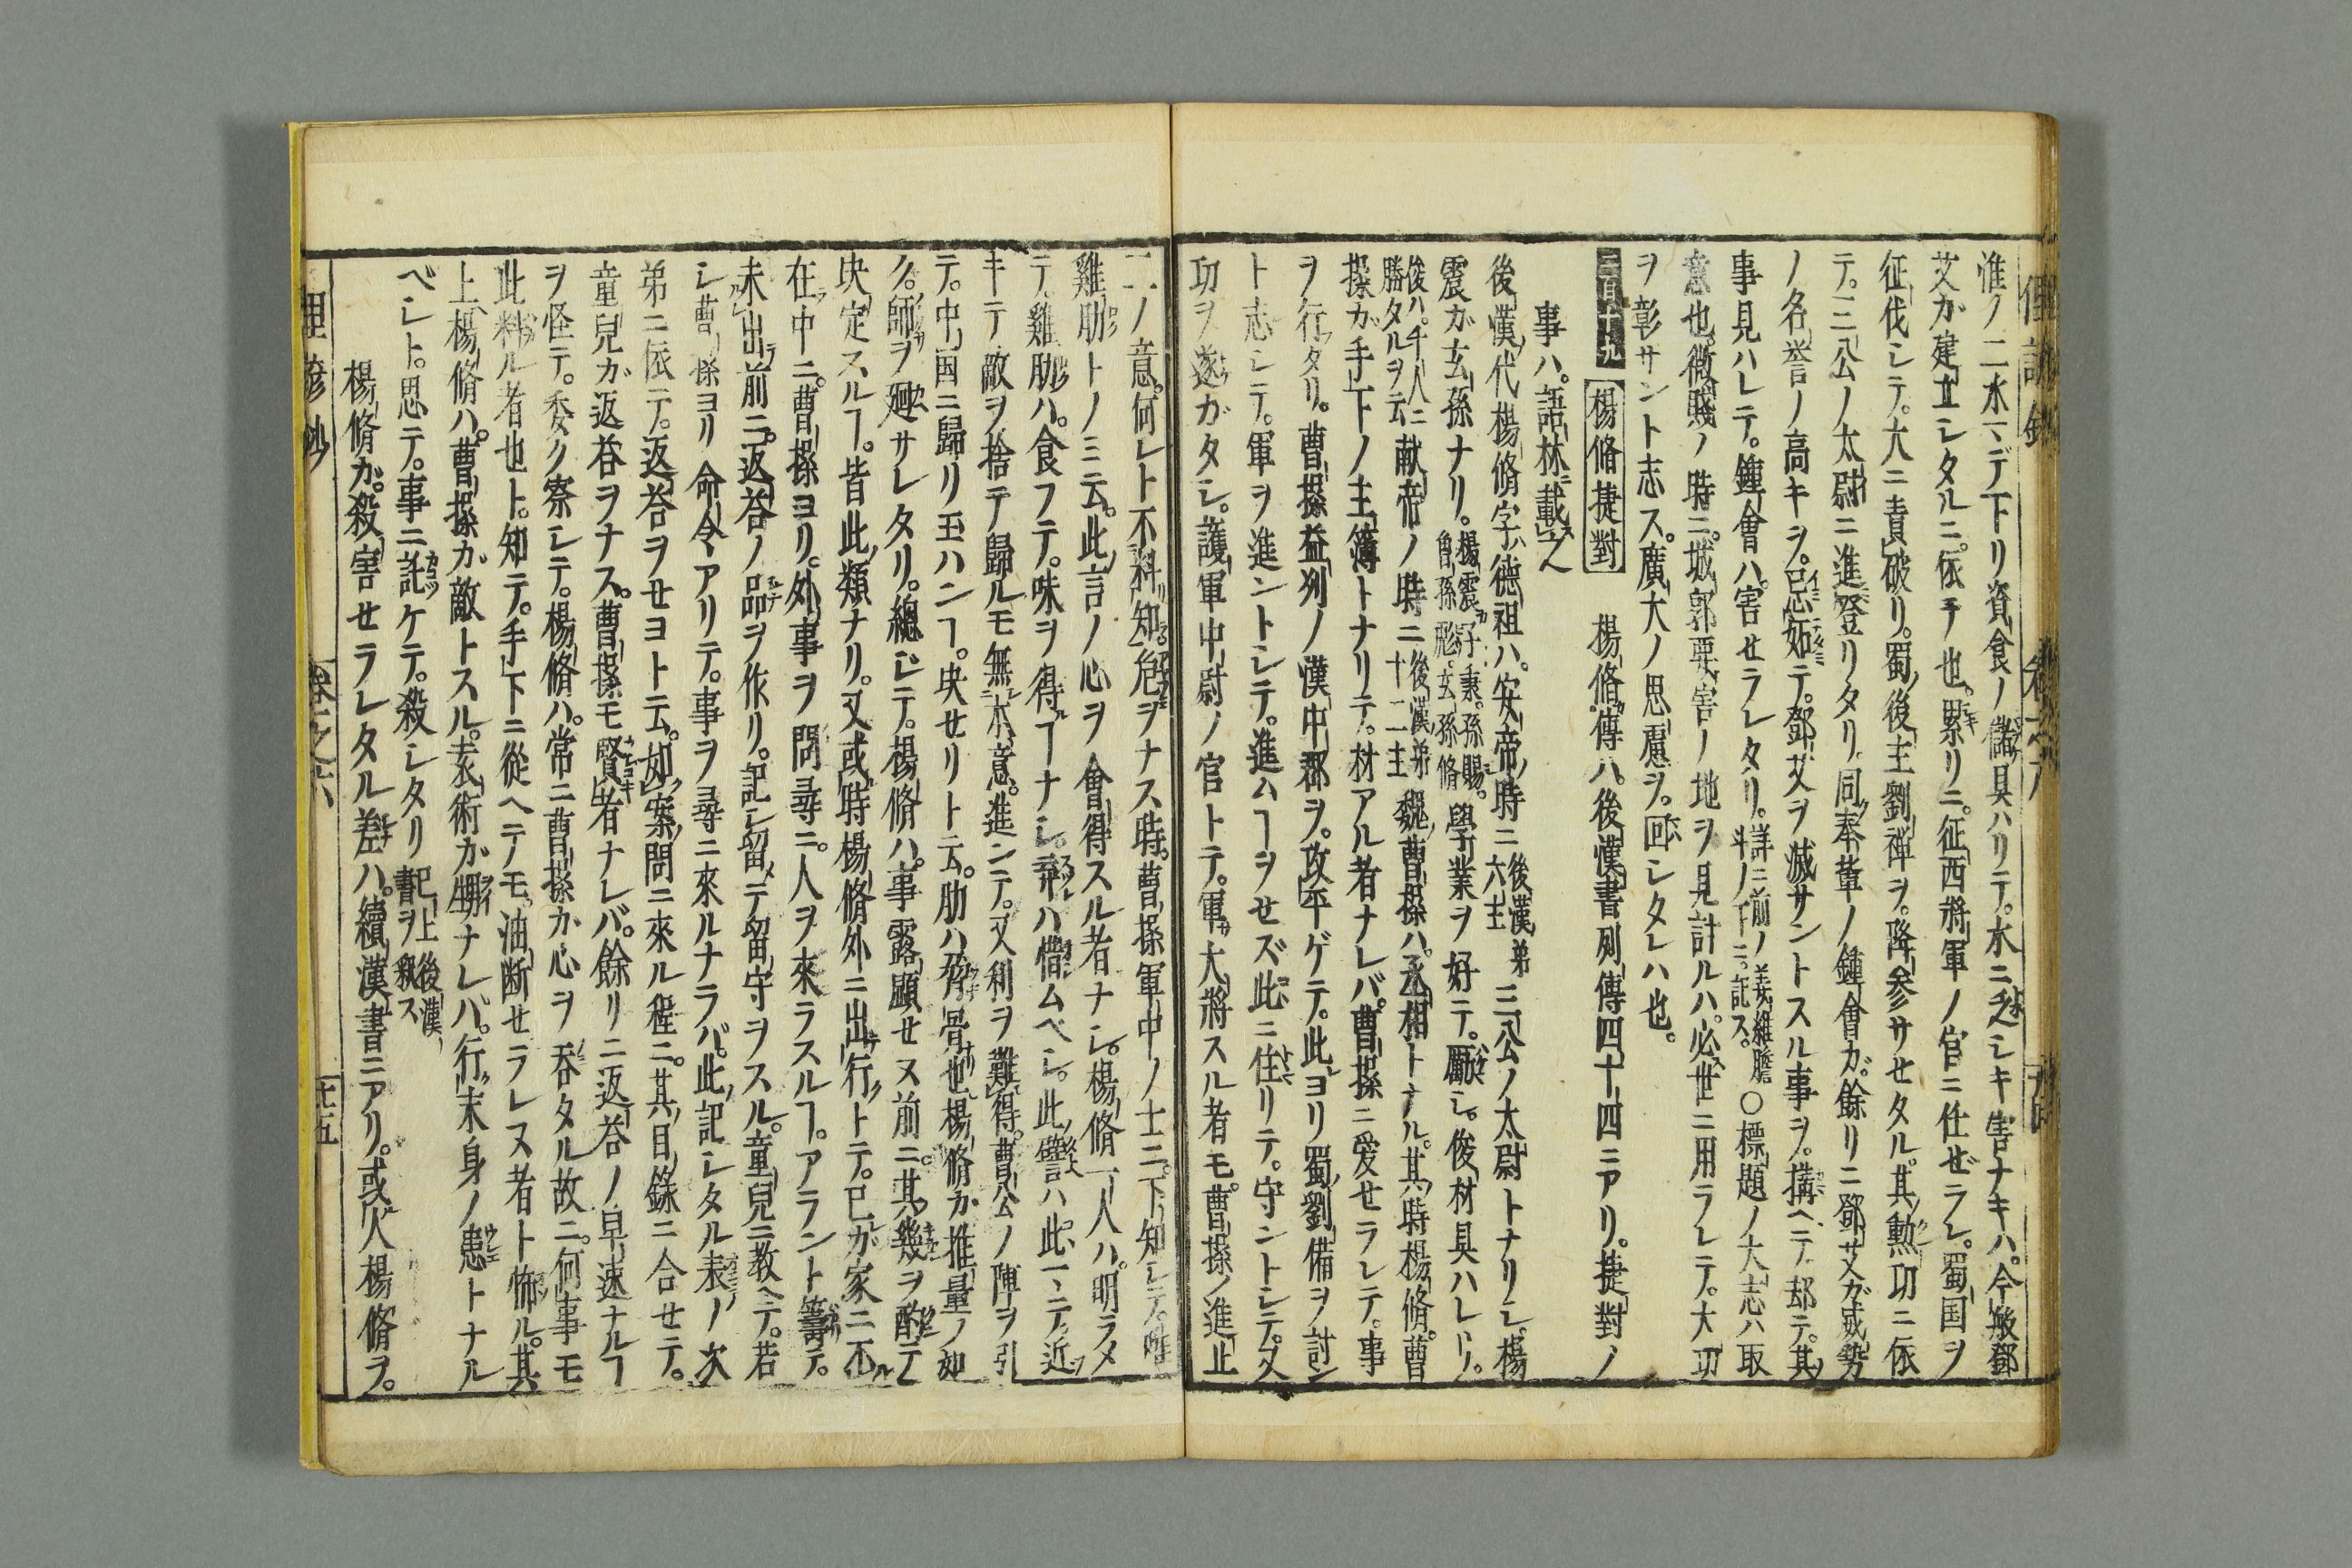 淮ノ二水マデ下リ資食ノ儲具ハリテ。水ニ乏シキ害ナキハ。今ノ鄧
艾ガ建立シタルニ。依テ也。累リニ。征西將軍ノ官ニ仕ゼラレ。蜀国ヲ
征伐シテ。大ニ責破リ。蜀ノ後主劉禅ヲ。降参サセタル。其勲功ニ依
テ。三公ノ太尉ニ進登リタリ。同奉輩ノ鍾會ガ。餘リニ鄧艾ガ威勢
ノ名誉ノ高キヲ。忌妬テ。鄧艾ヲ滅サントスル事ヲ。搆ヘテ。却テ。其
事見ハレテ。鍾會ハ。害セラレタリ。詳ニ前ノ姜維膽斗ノ下ニ。記ス。〇標題ノ大志ハ取
意也。微賤ノ時ニ。城郭要害ノ地ヲ見計ルハ。必世ニ用ラレテ。大功
ヲ彰サント志ス。廣大ノ思慮ヲ。回シタレハ也。
三百十九 楊脩捷對 楊脩傳ハ。後漢書列傳四十四ニアリ。捷對ノ
事ハ。語林載之
後漢ノ代楊脩字德祖ハ。安帝ノ時ニ後漢弟六主三公ノ太尉トナリシ。楊
震ガ玄孫ナリ。楊震子秉。孫賜。曽孫彪。玄孫脩學業ヲ好テ。厭シ。俊材具ハレリ。
俊ハ。千人ニ勝タルヲ云献帝ノ時ニ後漢弟十二主魏ノ曹操ハ。丞相トナル。其時楊脩。曹
操ガ手下ノ主簿トナリテ。材アル者ナレバ。曹操ニ愛セラレテ。事
ヲ行タリ。曹操益州ノ漢中郡ヲ。攻平ゲテ。此ヨリ蜀ノ劉備ヲ討ン
ト志シテ。軍ヲ進ントシテ。進ムヿヲセズ此ニ住リテ。守ントシテ。又
功ヲ遂ガタシ。護軍中尉ノ官トテ。軍大將スル者モ。曹操ノ進止
二ノ意。何レト不料知。危ヲナス時。曹操軍中ノ士ニ。下知シテ。唯
雞肋トノミ云。此言ノ心ヲ會得スル者ナシ。楊脩一人ハ。明ラメ
テ。雞肋ハ。食フテ。味ヲ得ヿナシ。棄ハ惜ムベシ。此譬ハ此マニテ。近
キテ敵ヲ捨テ歸ルモ無本意。進ンテ。又利ヲ難得。曹公ノ陣ヲ引
テ。中国ニ歸リ玉ハンヿ。决セリト云。肋ハ脅骨也楊脩ガ推量ノ如
ク。師ヲ廻サレタリ。總ジテ。楊脩ハ。事露顕セヌ前ニ。其幾ヲ酌テ
决定スルヿ。皆此類ナリ。又或時楊脩外ニ出行トテ。已ガ家ニ不
在中ニ。曹操ヨリ。外事ヲ問尋ニ。人ヲ來ラスルヿ。アラント籌テ。
未出前ニ。返荅ノ品ヲ作リ。記シ留テ留守ヲスル。童兒ニ教ヘテ。若
シ曹操ヨリ命令アリテ。事ヲ尋ニ來ルナラバ。此記シタル表ノ次
弟ニ依テ。返荅ヲセヨト云。如案問ニ來ル程ニ。其目録ニ合セテ。
童兒ガ返荅ヲナス。曹操モ賢者ナレバ。餘リニ返荅ノ早速ナルヿ
ヲ怪テ。委ク察シテ。楊脩ハ。常ニ曹操ガ心ヲ呑タル故ニ。何事モ
此料ル者也ト。知テ。手下ニ從ヘテモ。油断セラレヌ者ト怖ル。其
上楊脩ハ。曹操ガ敵トスル。袁術ガ甥ナレバ。行末身ノ患トナル
ベシト。思テ。事ニ託ケテ。殺シタリ已上後漢書ヲ釈ス
楊脩ガ。殺害セラレタル差ハ。續漢書ニアリ。或人楊脩ヲ。